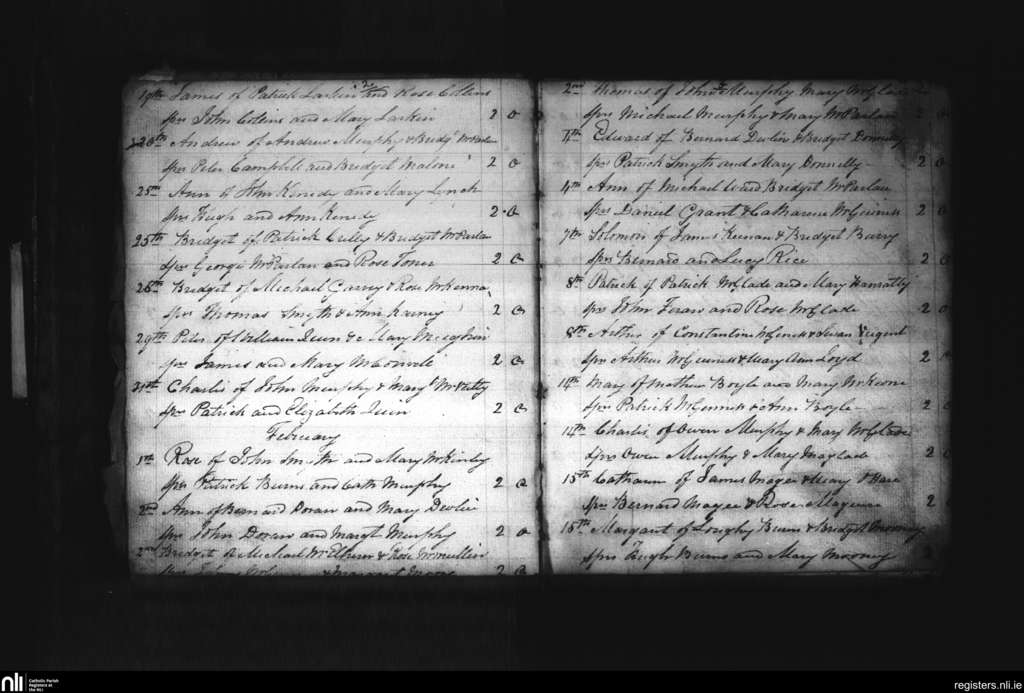 19th James of Patrick Larkin and Rose Collens
Sprs John Collens and Mary Larkin 2 0
26th Andrew of Andrew Murphy & Bridgt
Sprs Peter Campbell and Bridget Malone 2 0
25th Ann of John Kenedy and Mary Lynch
Sprs Hugh and Ann Kenedy 2 0
25th Bridget of Patrick Crilly & Bridget McParlan
Sprs George McParlan and Rose Toner 2 0
26th Bridget of Michael Garvy & Rose McKenna
Sprs Thomas Smyth & Ann 2 0
29th Peter of William Quin & Mary
Sprs James and Mary McConvile 2 0
31st Charles of John Murphy & Mary
Sprs Patrick and Elizabeth Quin 2 0
February
1st Rose of John Smith and Mary McKinly
Sprs Patrick Burns and Cath Murphy 2 0
2nd Ann of Bernard Doran and Mary Devlin
Sprs John Doran and Margt Murphy 2 0
2nd Bridget of Michael & Rose McMullin
Sprs & Margaret Moore 2 0
2nd Thomas of John Murphy Mary McGlade
Sprs Michael Murphy & Mary McParlan 2 0
4th Edward of Bernard Devlin & Bridget Donnelly
Sprs Patrick Smyth and Mary Donnelly 2 0
4th Ann of Michael Ward Bridget McParlan
Sprs Daniel Grant & Catharine McGuiness 2 0
7th Solomon of James Keenan & Bridget Barry
Sprs Bernard and Lucy Rice 2 0
8th Patrick of Patrick McGlade and Mary Hanratty
Sprs John and Rose McGlade 2 0
8th Arthur of Constantine McGenis & Susan Nugent
Sprs Arthur McGuiness & Mary Ann Loyd 2 0
14th Mary of Mathew Boyle and Mary McKeone
Sprs Patrick McGenness & Ann Boyle 2 0
14th Charles of Owen Murphy & Mary McGlade
Sprs Owen Murphy & Mary Maglade 2 0
15th Catharn of James Magee & Mary
Sprs Bernard Magee & Rose 2
15th Margaret of Burns & Bridget Mooney
Sprs Hugh Burns and Mary Mooney 2
nli
Catholic Parish
Registers at
the NLI
registers.nli.ie